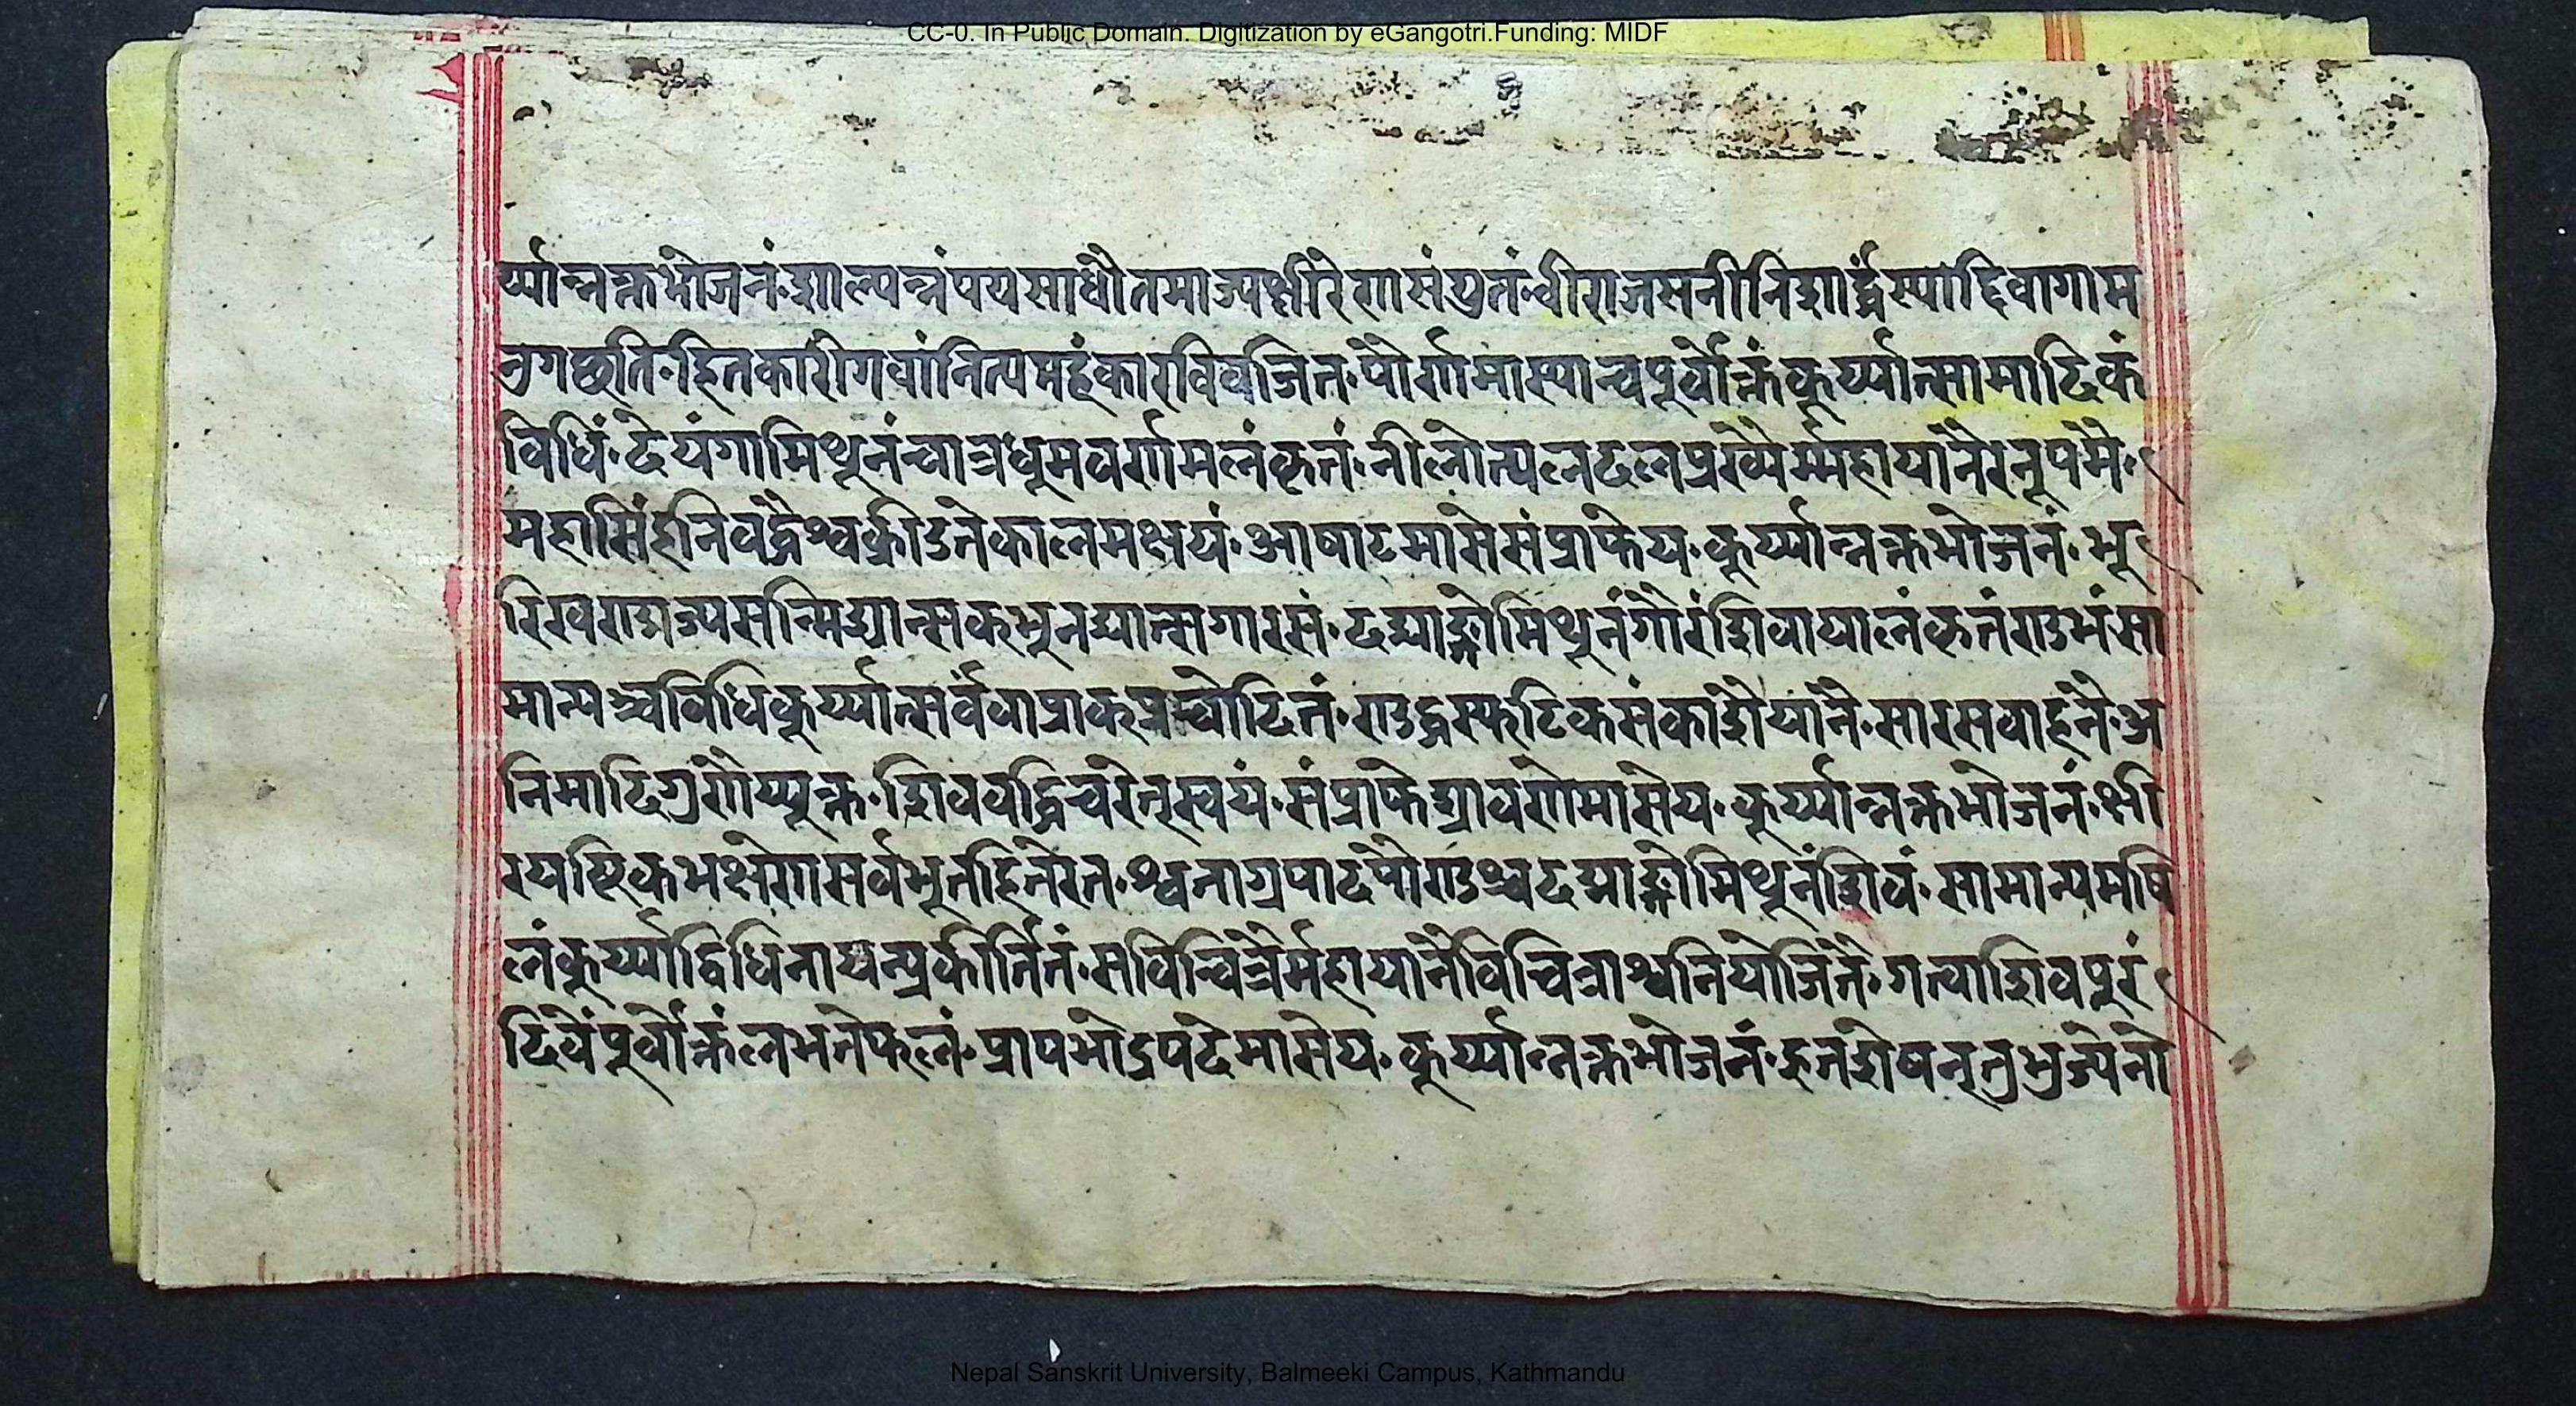 CC-0. In Public Domain. Digitization by eGangotri.Funding: MIDF
र्य्यान्नक्तभोजनं शाल्यन्नंपयसाधौतमाज्यक्षीरेणसंयुतं वीराजसनीनिशार्द्धंस्याद्दिवागाम
नुगछति हितकारीगवांनित्यमहंकारविवर्जित पौर्णमास्याञ्चपूर्वोक्तंकुर्य्यात्सामादिकं
विधिं देयंगामिथूनंचात्रधूमवर्णमलंकृतं नीलोत्पलदलप्रख्यैर्म्महायानैरनूपमै
महासिंहनिवद्धैश्चक्रीडतेकालमक्षयं आषाढमासेसंप्राप्तेय कुर्य्यान्नक्तभोजनं भू
रिखण्डाज्यसन्मिश्रान्सक्तभुनद्यात्सगोरसं दद्याङ्गोमिथूनंगौरंशिवायालंकृतंशुभंसा
मान्यञ्चविधिकुर्य्यात्सर्वंवाप्राकप्रचोदितं शुद्धस्फटिकसंकाशैयानै सारसवाहनै अ
निमादिगुणैय्युक्त शिववद्विचरेत्स्वयं संप्राप्तेश्रावणेमासेय कुर्य्यान्नक्तभोजनं क्षी
रयष्टिकभक्षेणसर्वभूतहितेरत श्वेताग्रपादंपौण्ड्रञ्चदद्याङ्गोमिथूनंशिवं सामान्यमखि
लंकुर्य्याद्विधिनायत्प्रकीर्तितं सविचित्रैर्महायानैविचित्राश्वनियोजितै गत्वाशिवपुरं
दिव्यंपूर्वोक्तंलभतेफलं प्राप्यभाद्रपदेमासेय कुर्य्यान्नक्तभोजनं हुतशेषन्तुभुज्येतो
Nepal Sanskrit University, Balmeeki Campus, Kathmandu